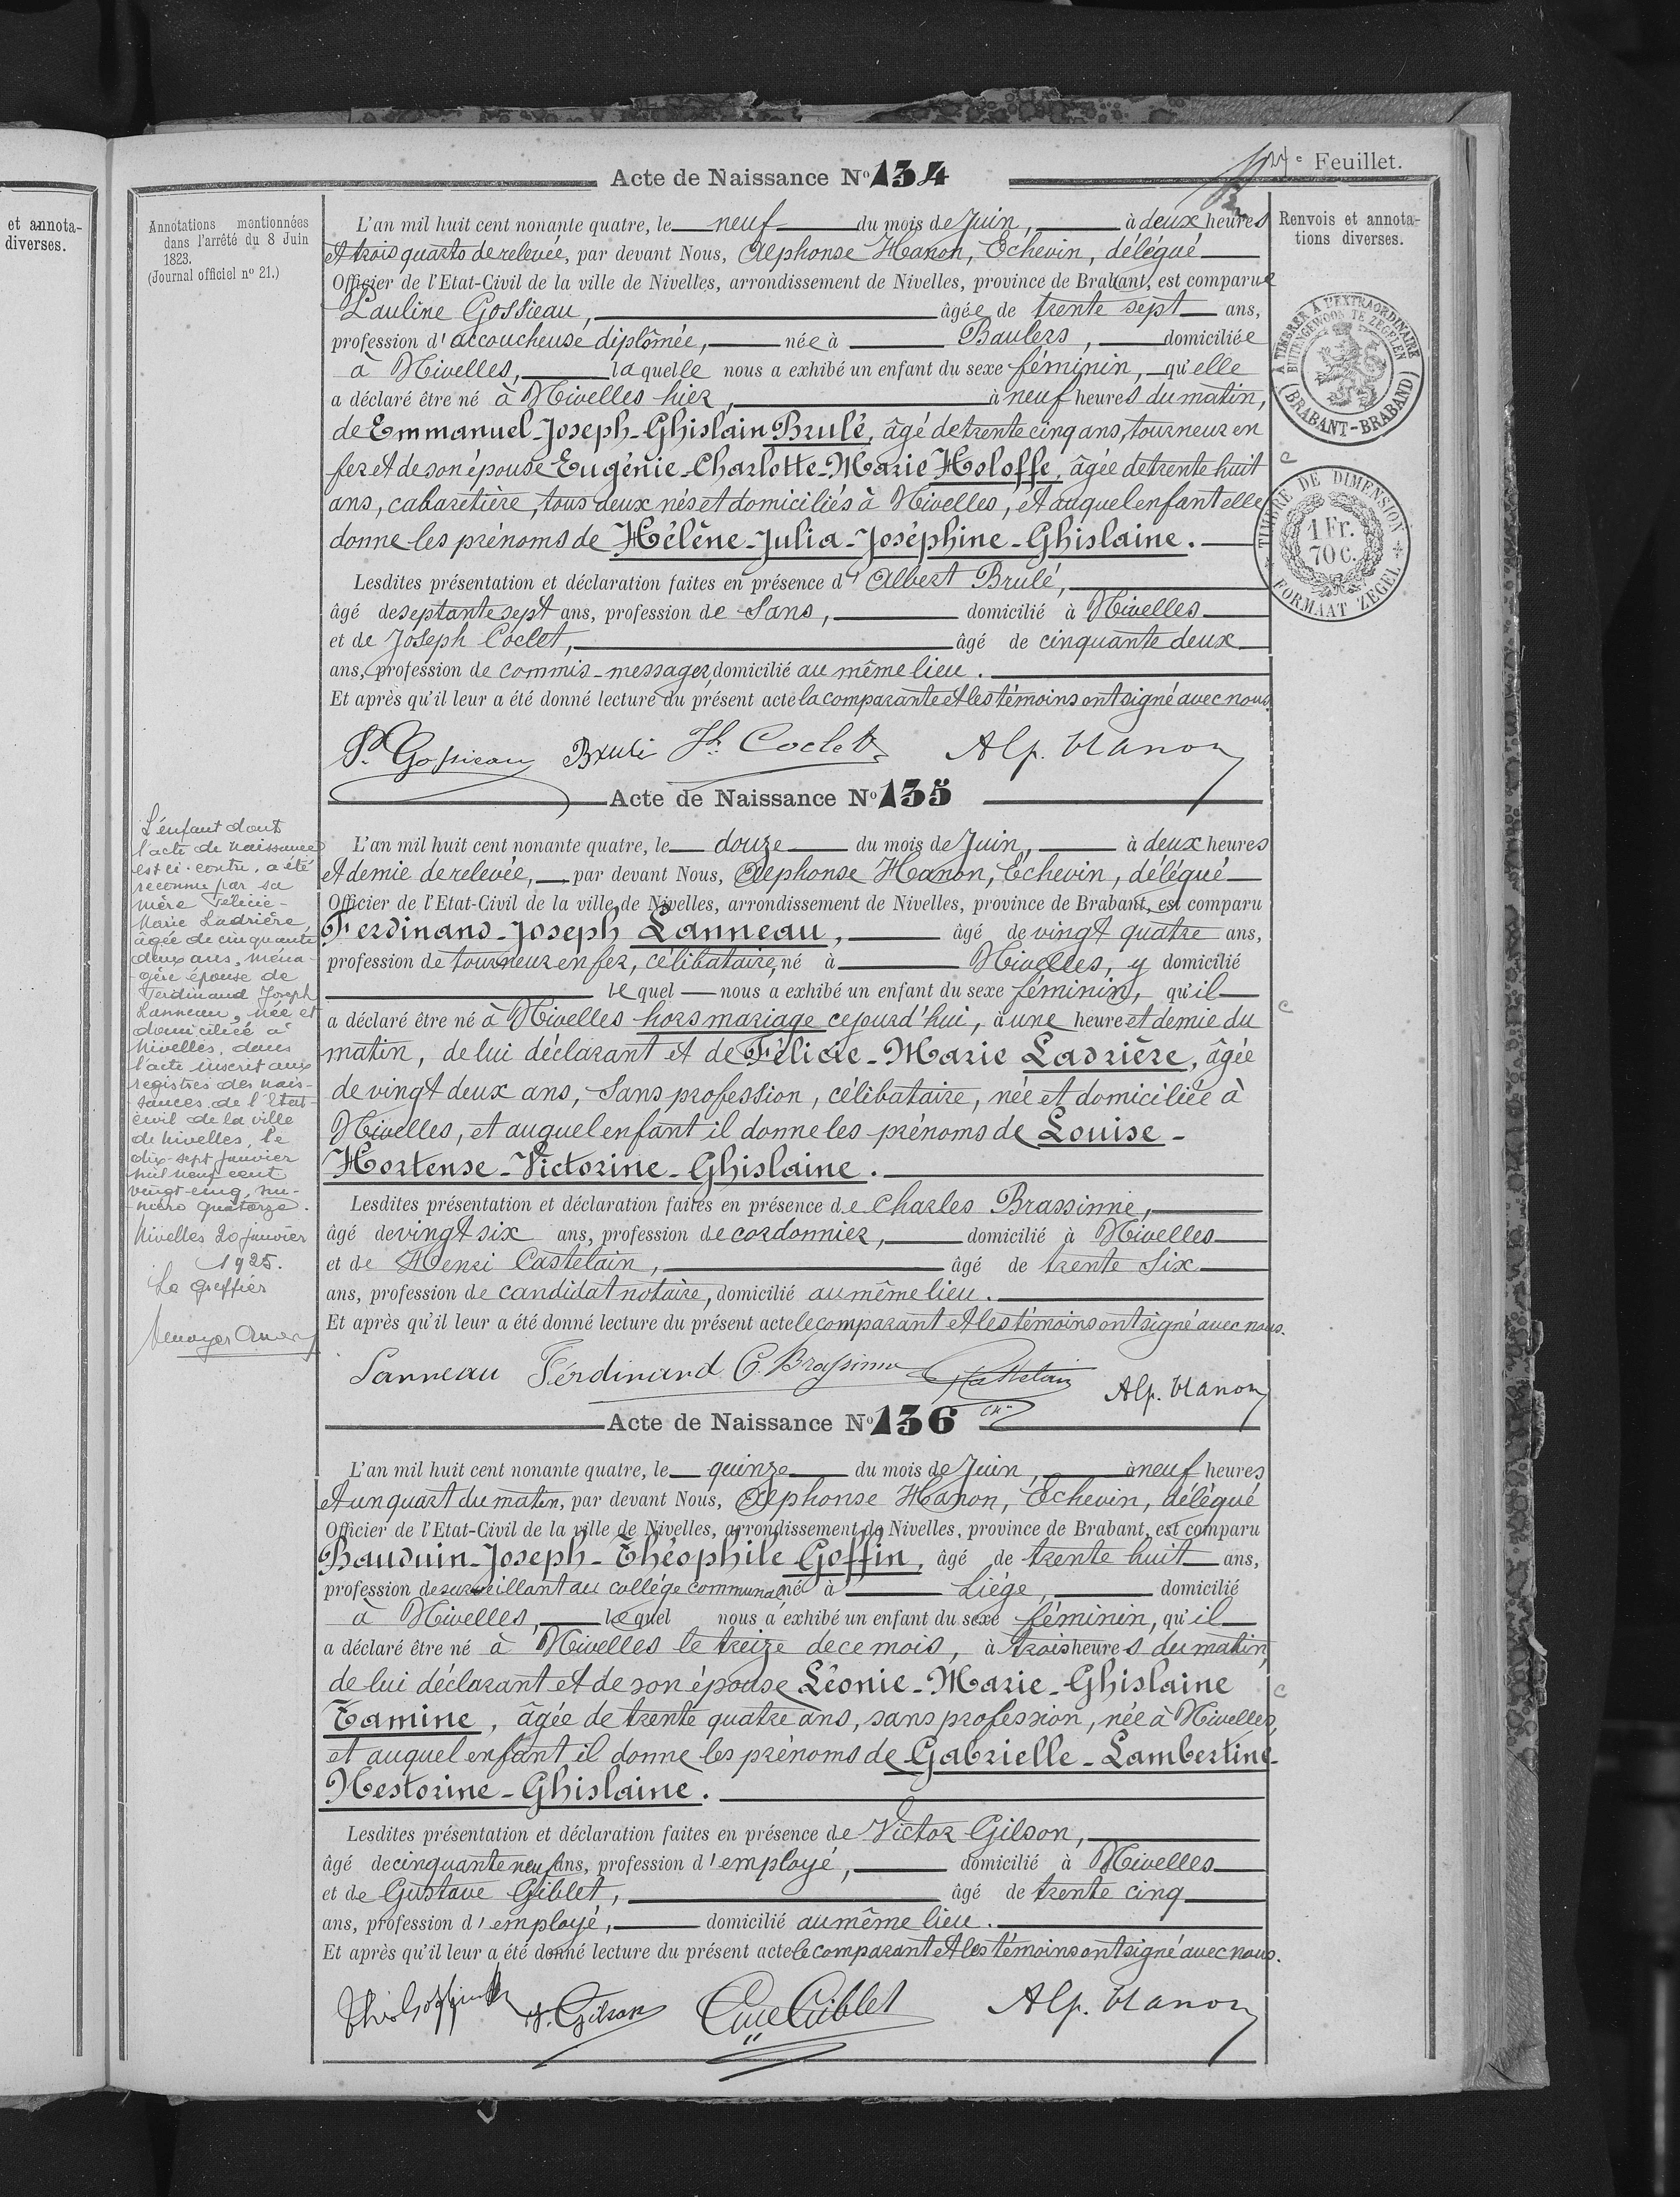 et annota-
diverses.
Feuillet.
Acte de Naissance No 134
Annotations mentionnées
dans l'arrêté du 8 Juin
1823.
(Journal officiel no 21.)
Renvois et annota-
tions diverses.
L'an mil huit cent nonante quatre, le neuf du mois de Juin, à deux heures
et trois quarts de relevée, par devant Nous, Alphonse Hanon, Echevin, délégué
Officier de l'Etat-Civil de la ville de Nivelles, arrondissement de Nivelles, province de Brabant, est comparue
Pauline Gossieau, âgée de trente sept ans,
profession d'accoucheuse diplômée, née à Baulers, domiciliée
à Nivelles, laquelle nous a exhibé un enfant du sexe féminin, qu'elle
a déclaré être né à Nivelles hier, à neuf heures du matin,
de Emmanuel-Joseph-Ghislain Brulé, âgé de trente cinq ans, tourneur en
fer et de son épouse Eugénie-Charlotte-Marie Holoffe, âgée de trente huit
ans, cabaretière, tous deux nés et domiciliés à Nivelles, et auquel enfant elle
donne les prénoms de Hélène-Julia-Joséphine-Ghislaine.
Lesdites présentation et déclaration faites en présence d'Albert Brulé,
âgé de septante sept ans, profession de sans, domicilié à Nivelles
et de Joseph Coclet, âgé de cinquante deux
ans, profession de commis-messager, domicilié au même lieu.
Et après qu'il leur a été donné lecture du présent acte la comparante et les témoins ont signé avec nous.
P. Gossieau Brulé Jh. Coclet Alp. Hanon
A TIMBRER A L'EXTRAORDINAIRE
BUITENGEWOON TE ZEGELEN
(BRABANT-BRABAND)
TIMBRE DE DIMENSION
1 Fr.
70 c.
FORMAAT ZEGEL
Acte de Naissance No 135
L'enfant dont
l'acte de naissance
est ci-contre, a été
reconnu par sa
mère Félicie-
Marie Ladrière,
âgée de cinquante
deux ans, ména-
gère épouse de
Ferdinand Joseph
Lanneau, née et
domiciliée à
Nivelles, dans
l'acte inscrit aux
registres des nais-
sances de l'Etat-
civil de la ville
de Nivelles, le
dix-sept janvier
mil neuf cent
vingt-cinq, nu-
méro quatorze.
Nivelles 20 janvier
1925.
Le Greffier
L'an mil huit cent nonante quatre, le douze du mois de Juin, à deux heures
et demie de relevée, par devant Nous, Alphonse Hanon, Echevin, délégué
Officier de l'Etat-Civil de la ville de Nivelles, arrondissement de Nivelles, province de Brabant, est comparu
Ferdinand-Joseph Lanneau, âgé de vingt quatre ans,
profession de tourneur en fer, célibataire, né à Nivelles, y domicilié
lequel nous a exhibé un enfant du sexe féminin, qu'il
a déclaré être né à Nivelles hors mariage cejourd'hui, à une heure et demie du
matin, de lui déclarant et de Félicie-Marie Ladrière, âgée
de vingt deux ans, sans profession, célibataire, née et domiciliée à
Nivelles, et auquel enfant il donne les prénoms de Louise-
Hortense-Victorine-Ghislaine.
Lesdites présentation et déclaration faites en présence de Charles Brassinne,
âgé de vingt six ans, profession de cordonnier, domicilié à Nivelles
et de Henri Castelain, âgé de trente six
ans, profession de candidat notaire, domicilié au même lieu.
Et après qu'il leur a été donné lecture du présent acte le comparant et les témoins ont signé avec nous.
Lanneau Ferdinand C. Brassinne Castelain Alp. Hanon
Acte de Naissance No 136
L'an mil huit cent nonante quatre, le quinze du mois de Juin, à neuf heures
et un quart du matin, par devant Nous, Alphonse Hanon, Echevin, délégué
Officier de l'Etat-Civil de la ville de Nivelles, arrondissement de Nivelles, province de Brabant, est comparu
Bauduin-Joseph-Théophile Goffin, âgé de trente huit ans,
profession de surveillant au collége communal, né à Liége, domicilié
à Nivelles, lequel nous a exhibé un enfant du sexe féminin, qu'il
a déclaré être né à Nivelles le treize de ce mois, à trois heures du matin,
de lui déclarant et de son épouse Léonie-Marie-Ghislaine
Tamine, âgée de trente quatre ans, sans profession, née à Nivelles,
et auquel enfant il donne les prénoms de Gabrielle-Lambertine-
Nestorine-Ghislaine.
Lesdites présentation et déclaration faites en présence de Victor Gilson,
âgé de cinquante neuf ans, profession d'employé, domicilié à Nivelles
et de Gustave Giblet, âgé de trente cinq
ans, profession d'employé, domicilié au même lieu.
Et après qu'il leur a été donné lecture du présent acte le comparant et les témoins ont signé avec nous.
Théo Goffin V. Gilson Giblet Alp. Hanon